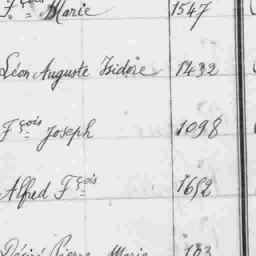 Fçois Marie 1547
Léon Auguste Isidore 1432
Fçois Joseph 1098
Alfred Fçois 1652
Désiré Pierre Marie 183